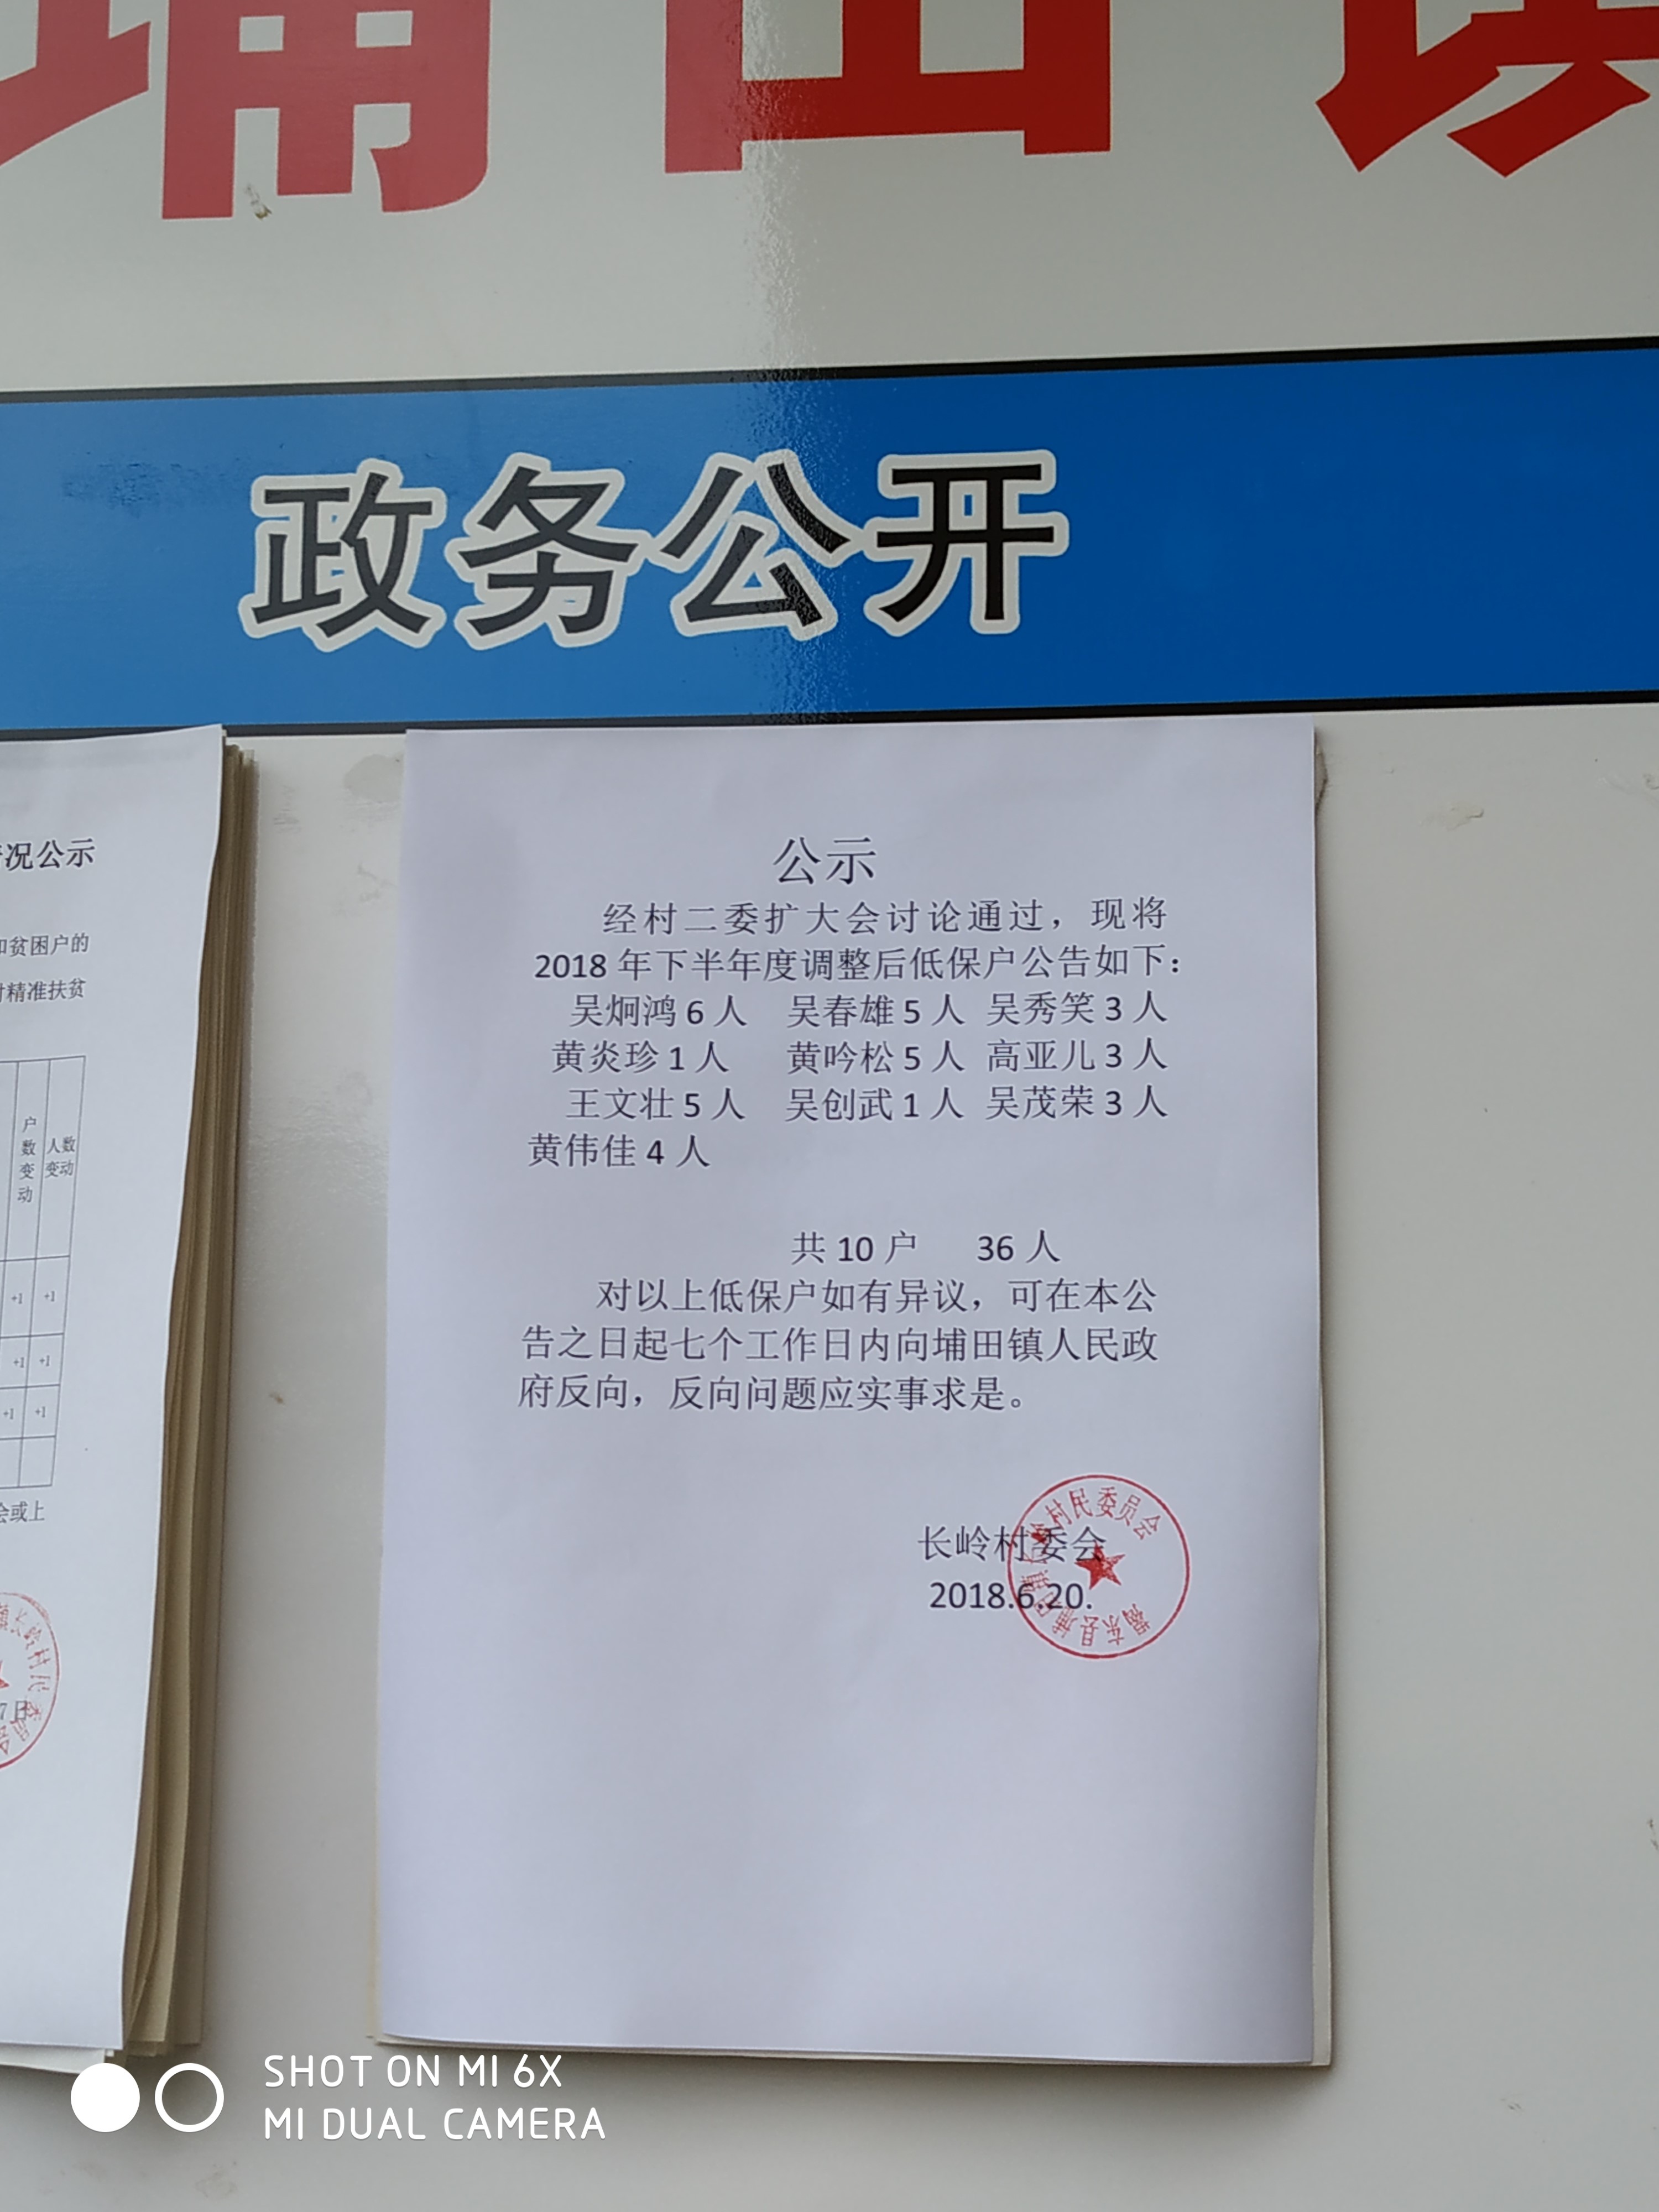 埔田镇
政务公开
况公示
和贫困户的
精准扶贫
户数变动
人数变动
+1 +1
+1 +1
+1 +1
会或上
镇长岭村民委员会
7日
公示
经村二委扩大会讨论通过，现将
2018年下半年度调整后低保户公告如下：
吴炯鸿6人 吴春雄5人 吴秀笑3人
黄炎珍1人 黄吟松5人 高亚儿3人
王文壮5人 吴创武1人 吴茂荣3人
黄伟佳4人
共10户 36人
对以上低保户如有异议，可在本公
告之日起七个工作日内向埔田镇人民政
府反向，反向问题应实事求是。
长岭村委会
2018.6.20.
揭东县埔田镇长岭村民委员会
SHOT ON MI 6X
MI DUAL CAMERA